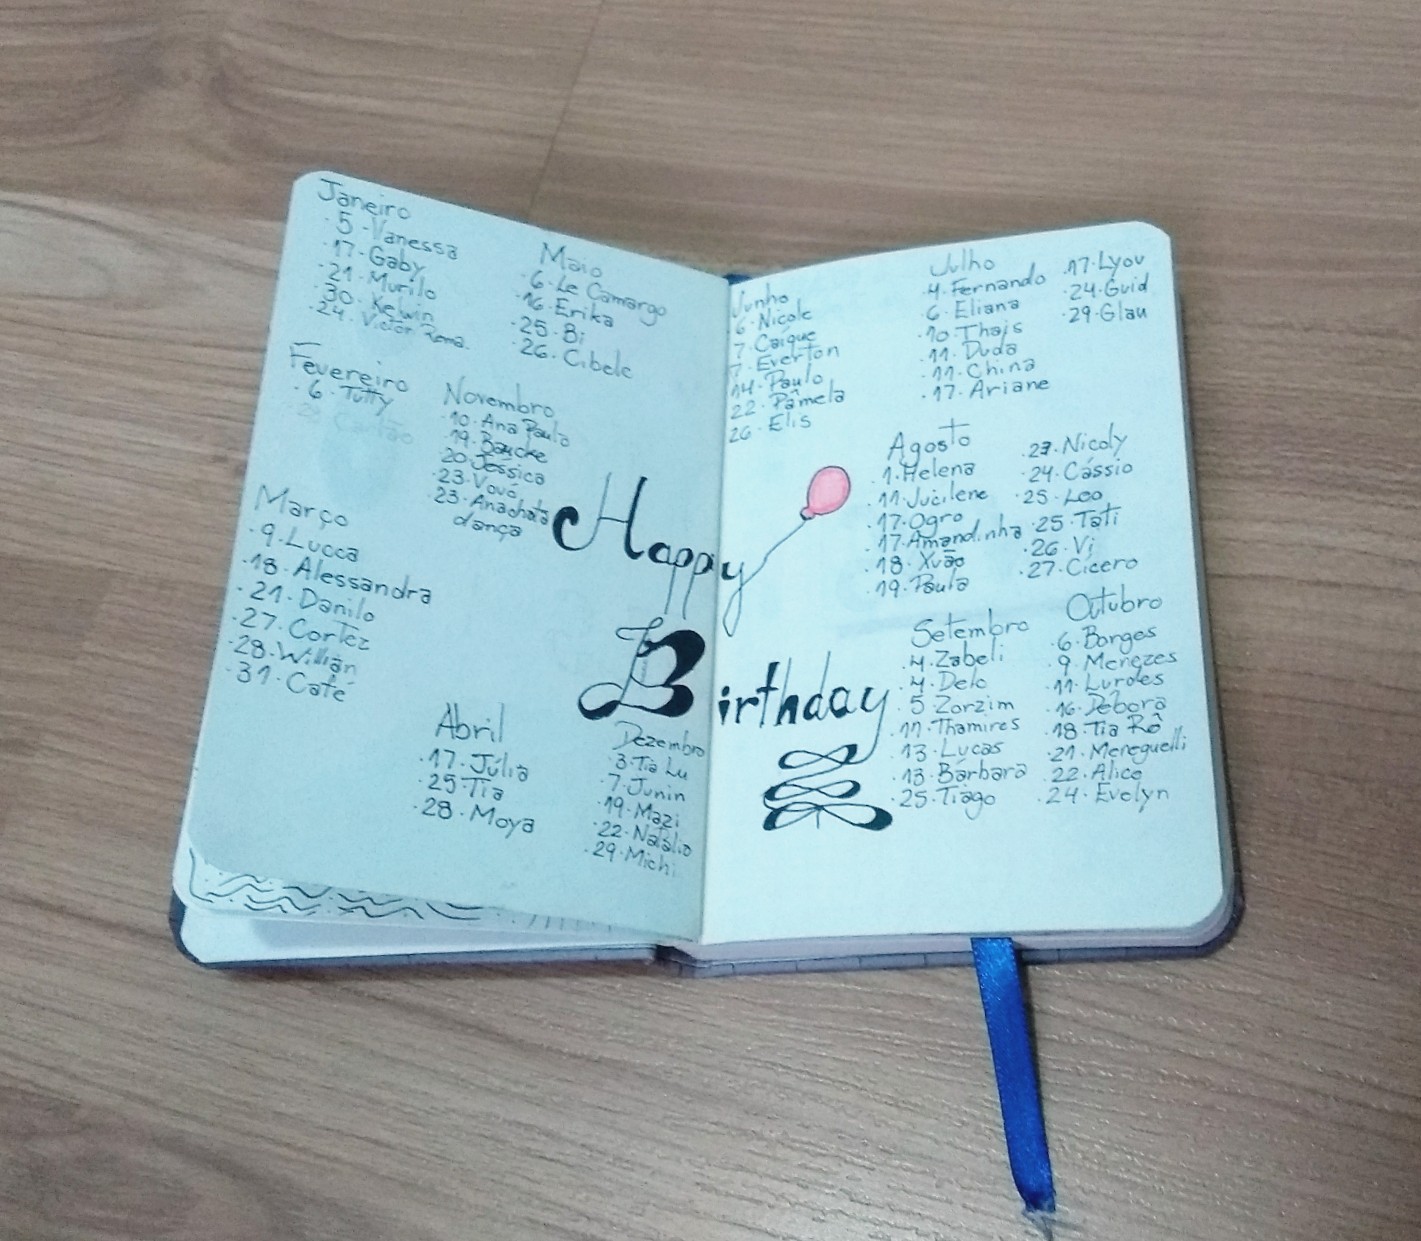 Janeiro
·5·Vanessa
·17·Gaby
·21·Murilo
·30·Kelwin
·24·Victor Roma.
Fevereiro
·6·Tutty
Março
·9·Lucca
·18·Alessandra
·21·Danilo
·27·Cortez
·28·Willian
·31·Café
Maio
·6·Le Camargo
·16·Erika
·25·Bi
·26·Cibele
Novembro
·10·Ana Paula
·19·
·20·Jessica
·23·Vovó
·23·Anachata
dança
Abril
·17·Júlia
·25·Tia
·28·Moya
Dezembro
·3·Tia Lu
·7·Junin
·19·Mazi
·22·Natálio
·29·Michi
Happy
Birthday
Junho
6·Nicole
7·Caíque
7·Everton
14·Paulo
22·Pâmela
26·Elis
Julho
·4·Fernando
·6·Eliana
·10·Thais
·11·Duda
·11·China
·17·Ariane
·17·Lyou
·24·Guid
·29·Glau
Agosto
·1·Helena
·11·Jucilene
·17·Ogro
·17·Amandinha
·18·Xuão
·19·Paula
·Nicoly
·24·Cássio
·25·Leo
·25·Tati
·26·Vi
·27·Cícero
Setembro
·4·Zabeli
·4·Dele
·5·Zorzim
·11·Thamires
·13·Lucas
·13·Bárbara
·25·Tiago
Outubro
·6·Borges
·9·Menezes
·11·Lurdes
·16·Débora
·18·Tia Rô
·21·Mereguelli
·22·Alice
·24·Evelyn